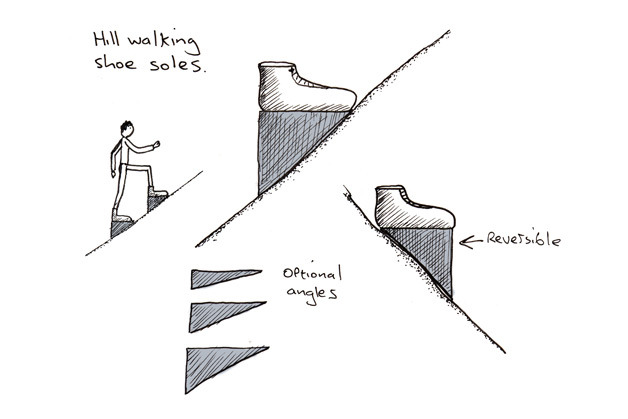 Hill walking
shoe soles.
Reversible
Optional
angles